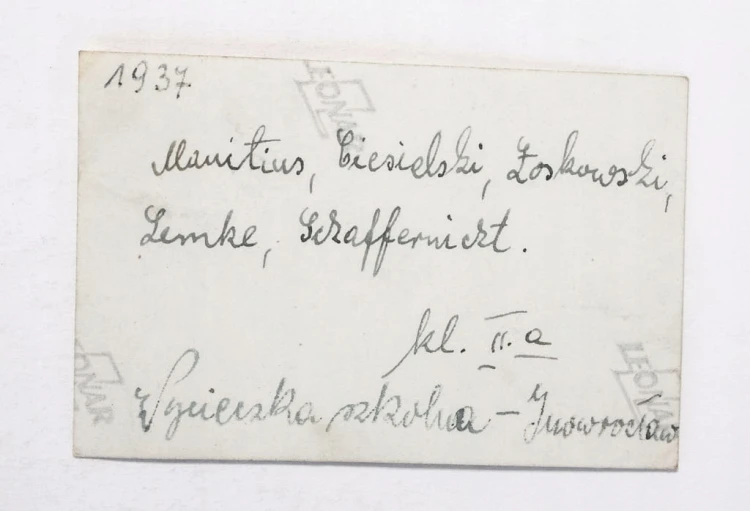 1937
LEONAR
Mauritius, Ciesielski, Łoskowski,
Lemke, Schaffernicht.
kl. II. a
LEONAR
LEONAR
Wycieczka szkolna – Inowrocław